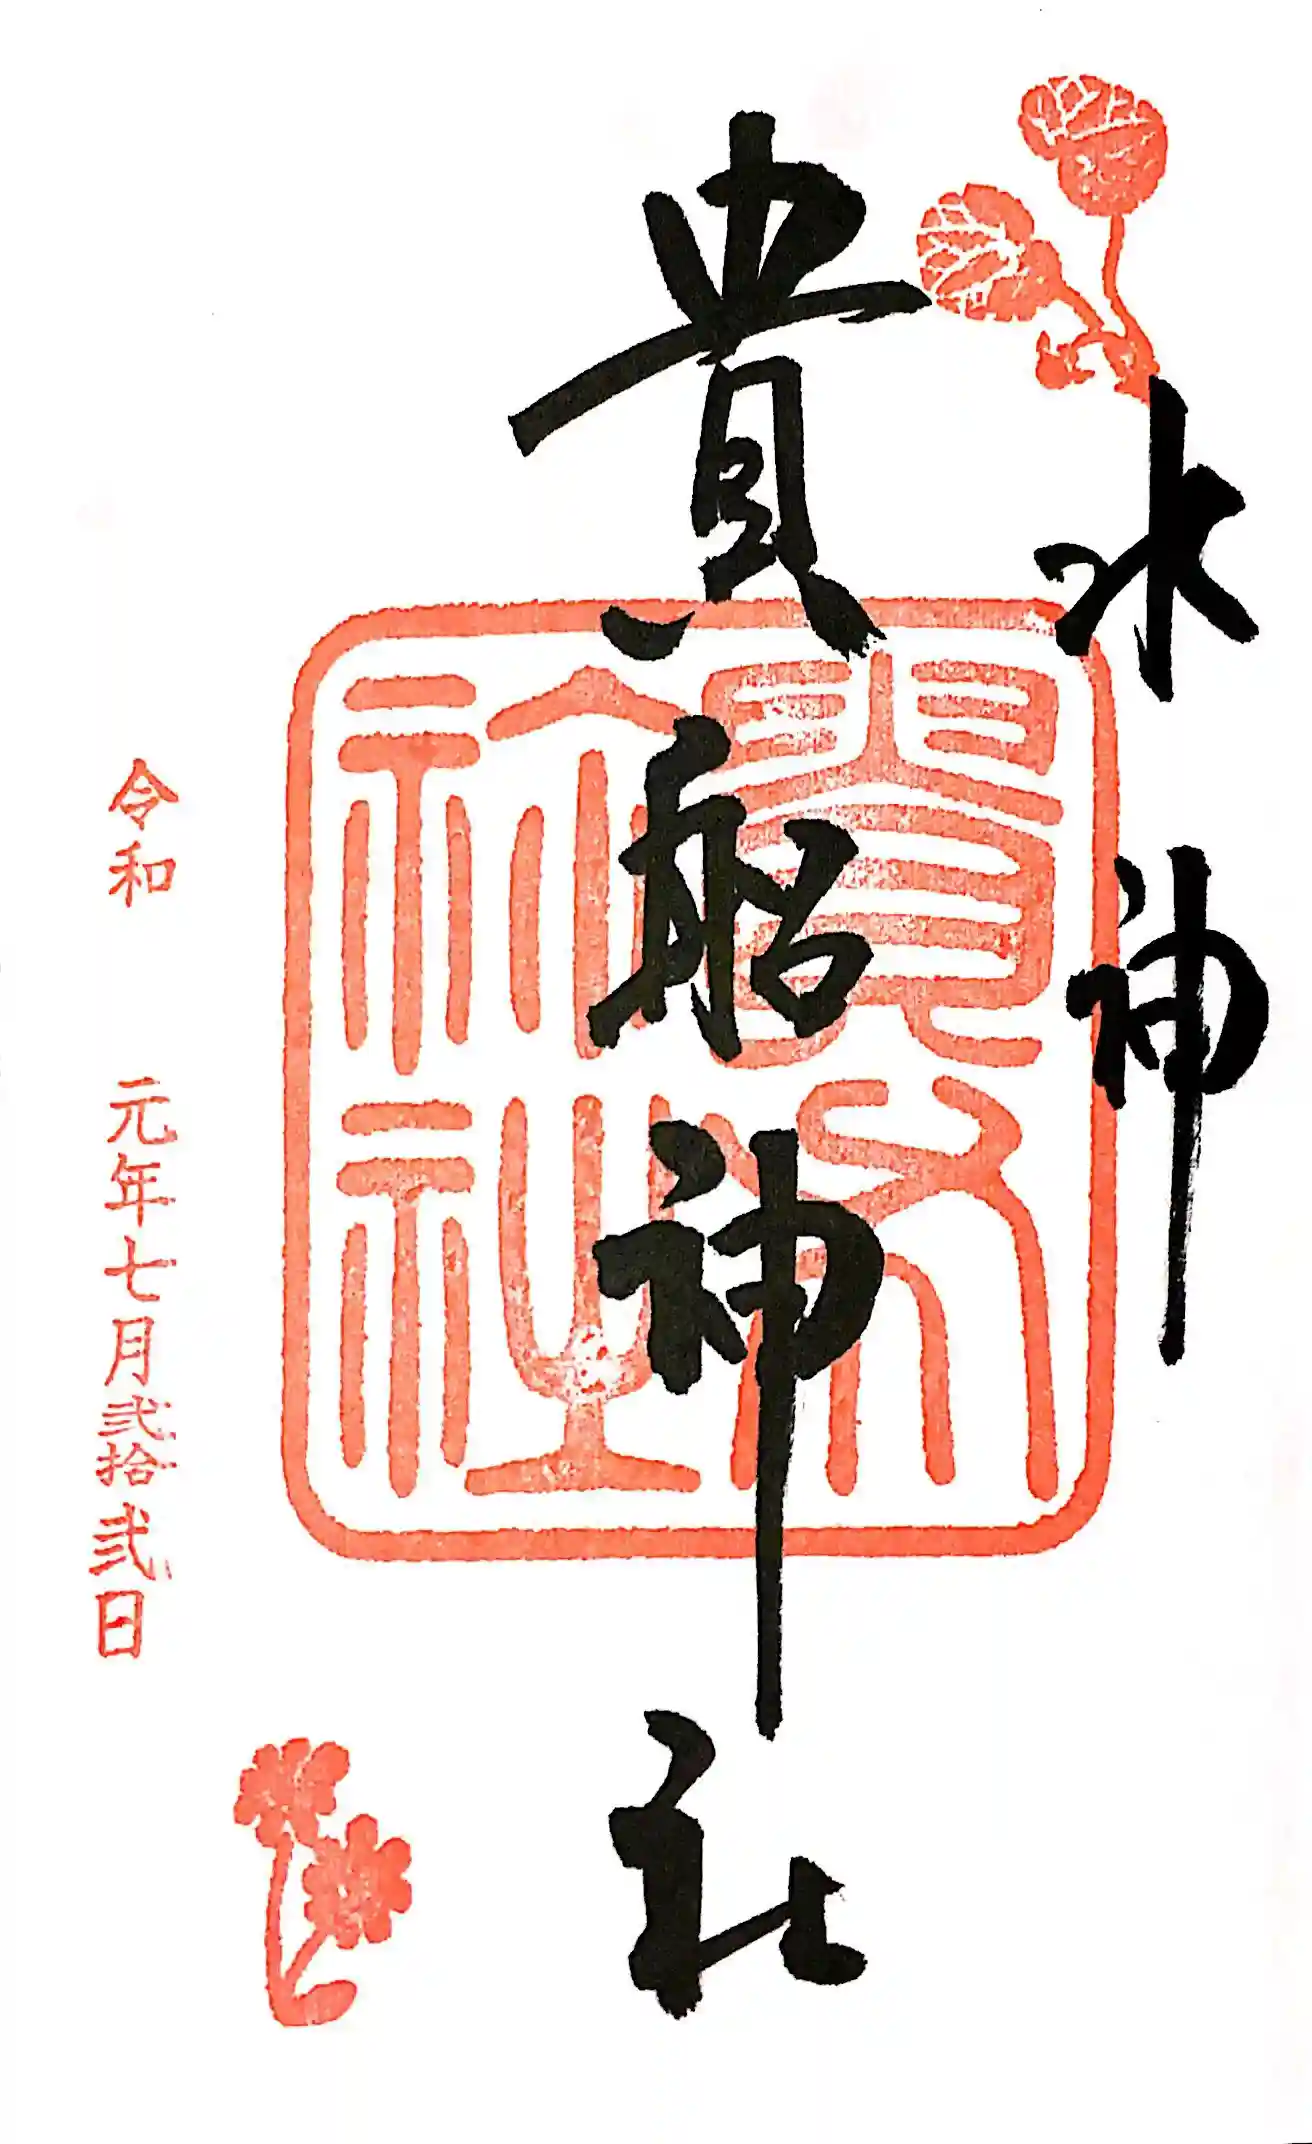 水神
貴船神社
令和元年七月弐拾弐日